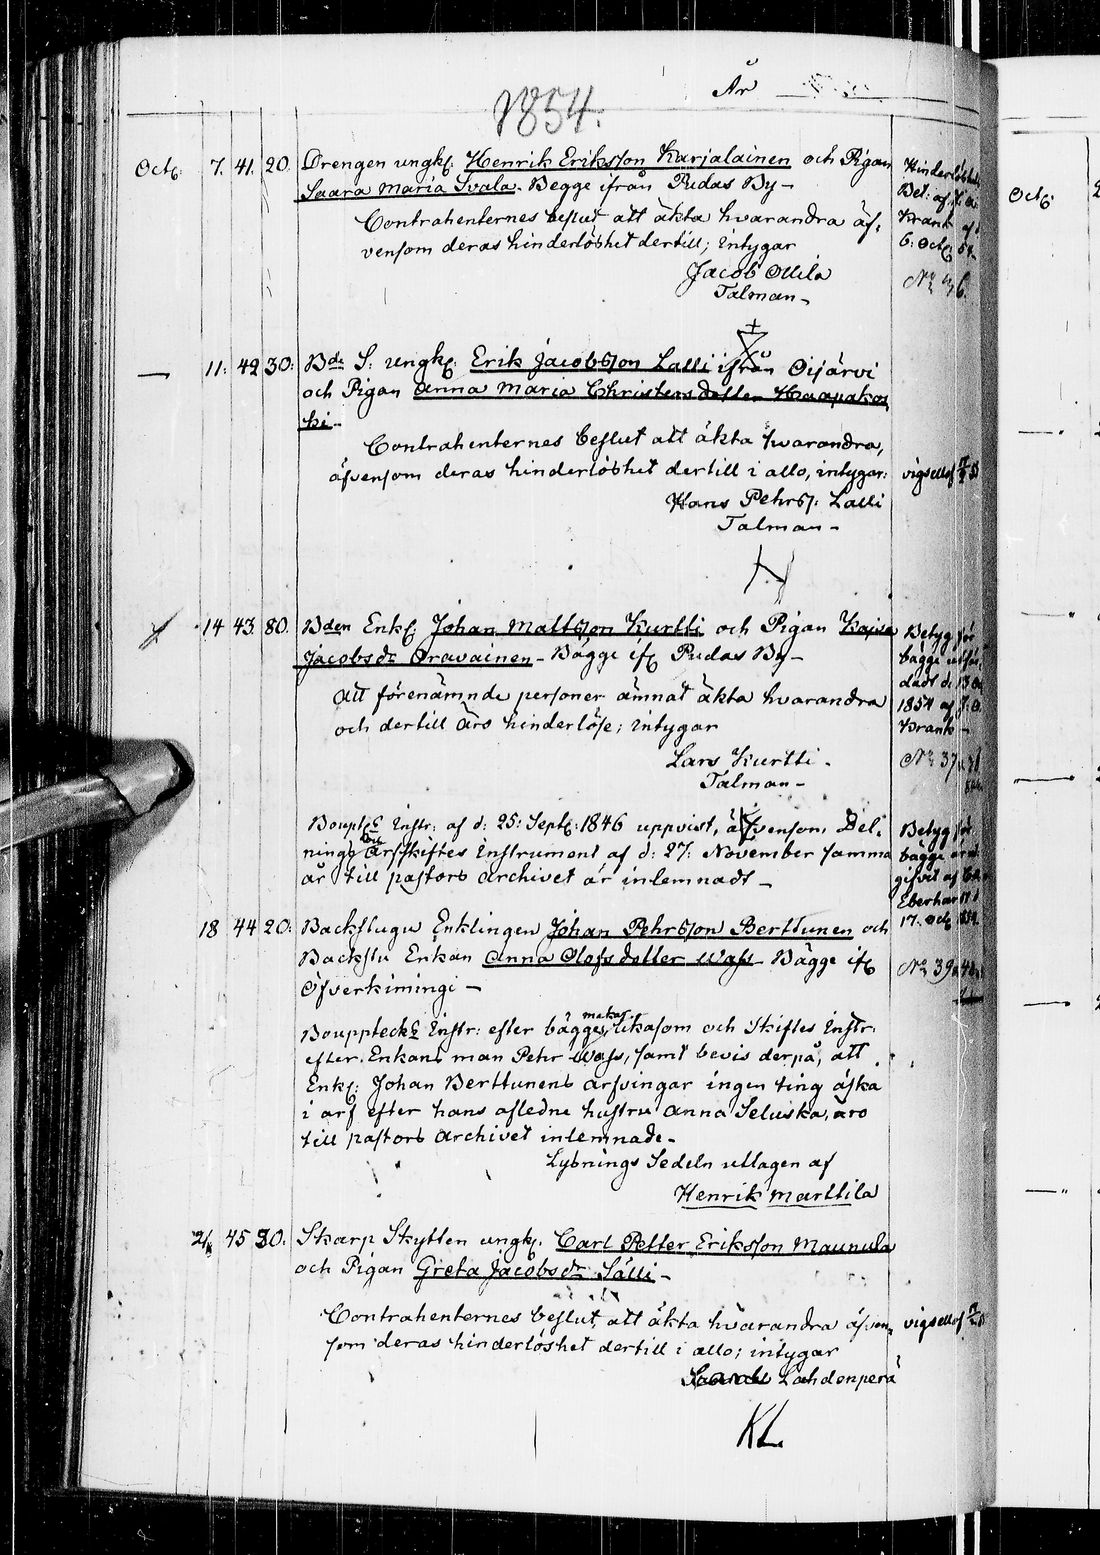 År
1854.
Octb: 7. 41. 20. Drengen ungk. Henrik Eriksson Karjalainen och Pigan
Saara Maria Svala. Begge ifrån Pudas By –
Contrahenternes beslut att äkta hvarandra äf-
vensom deras hinderlöshet dertill; intygar
Jacob Ollila
Talman –
Bet: af
Krank
6. Octb. 54
– 11: 42 30: Bde S: ungk. Erik Jacobsson Lalli ifrån Oijärvi
och Pigan Anna Maria Christersdotter Haapakos
ki –
Contrahenternes beslut att äkta hvarandra,
äfvensom deras hinderlöshet dertill i allo, intygar:
vigsell af
Hans Pehrss. Lalli
Talman –
14 43. 80. Bden Enkl. Johan Mattsson Kurtti och Pigan Kajsa
Jacobsdr Oravainen – Bägge ifr Pudas By –
Att förenämnde personer ämnat äkta hvarandra
och dertill äro hinderlöse; intygar
Lars Kurtti.
Talman –
Betyg för
bägge utfär-
dadt d. 13
1854 af
Krank –
No 37
Bouptgs Instr: af d: 25: Septb: 1846 uppvist, äfvensom Del-
nings och Arfskiftes Instrument af d: 27: November samma
år till pastors archivet är inlemnadt –
Betyg för
bägge
gifvit af
Eberhar
17. Octb 1854.
18 44 20: Backstugu Enklingen Johan Pehrsson Berttunen och
Backstu Enkan Anna Olofsdotter Wass Bägge ifr
Öfverkiimingi –
No 39
Bouppteckgs Instr: efter bägges makar, likasom och Skiftes Instr.
efter Enkans man Pehr Wass, samt bevis derpå, att
Enkl: Johan Berttunens arfvingar ingen ting äska
i arf efter hans aflidne hustru Anna Seluska, äro
till pastors archivet inlemnade –
Lysnings Sedeln uttagen af
Henrik Marttila
45 30. Skarp Skytten ungk. Carl Petter Eriksson Maunula
och Pigan Greta Jacobsdr Sälli –
Contrahenternes beslut, att äkta hvarandra äfven-
som deras hinderlöshet dertill i allo; intygar
vigsell af
Lahdenperä
KL
Octb: